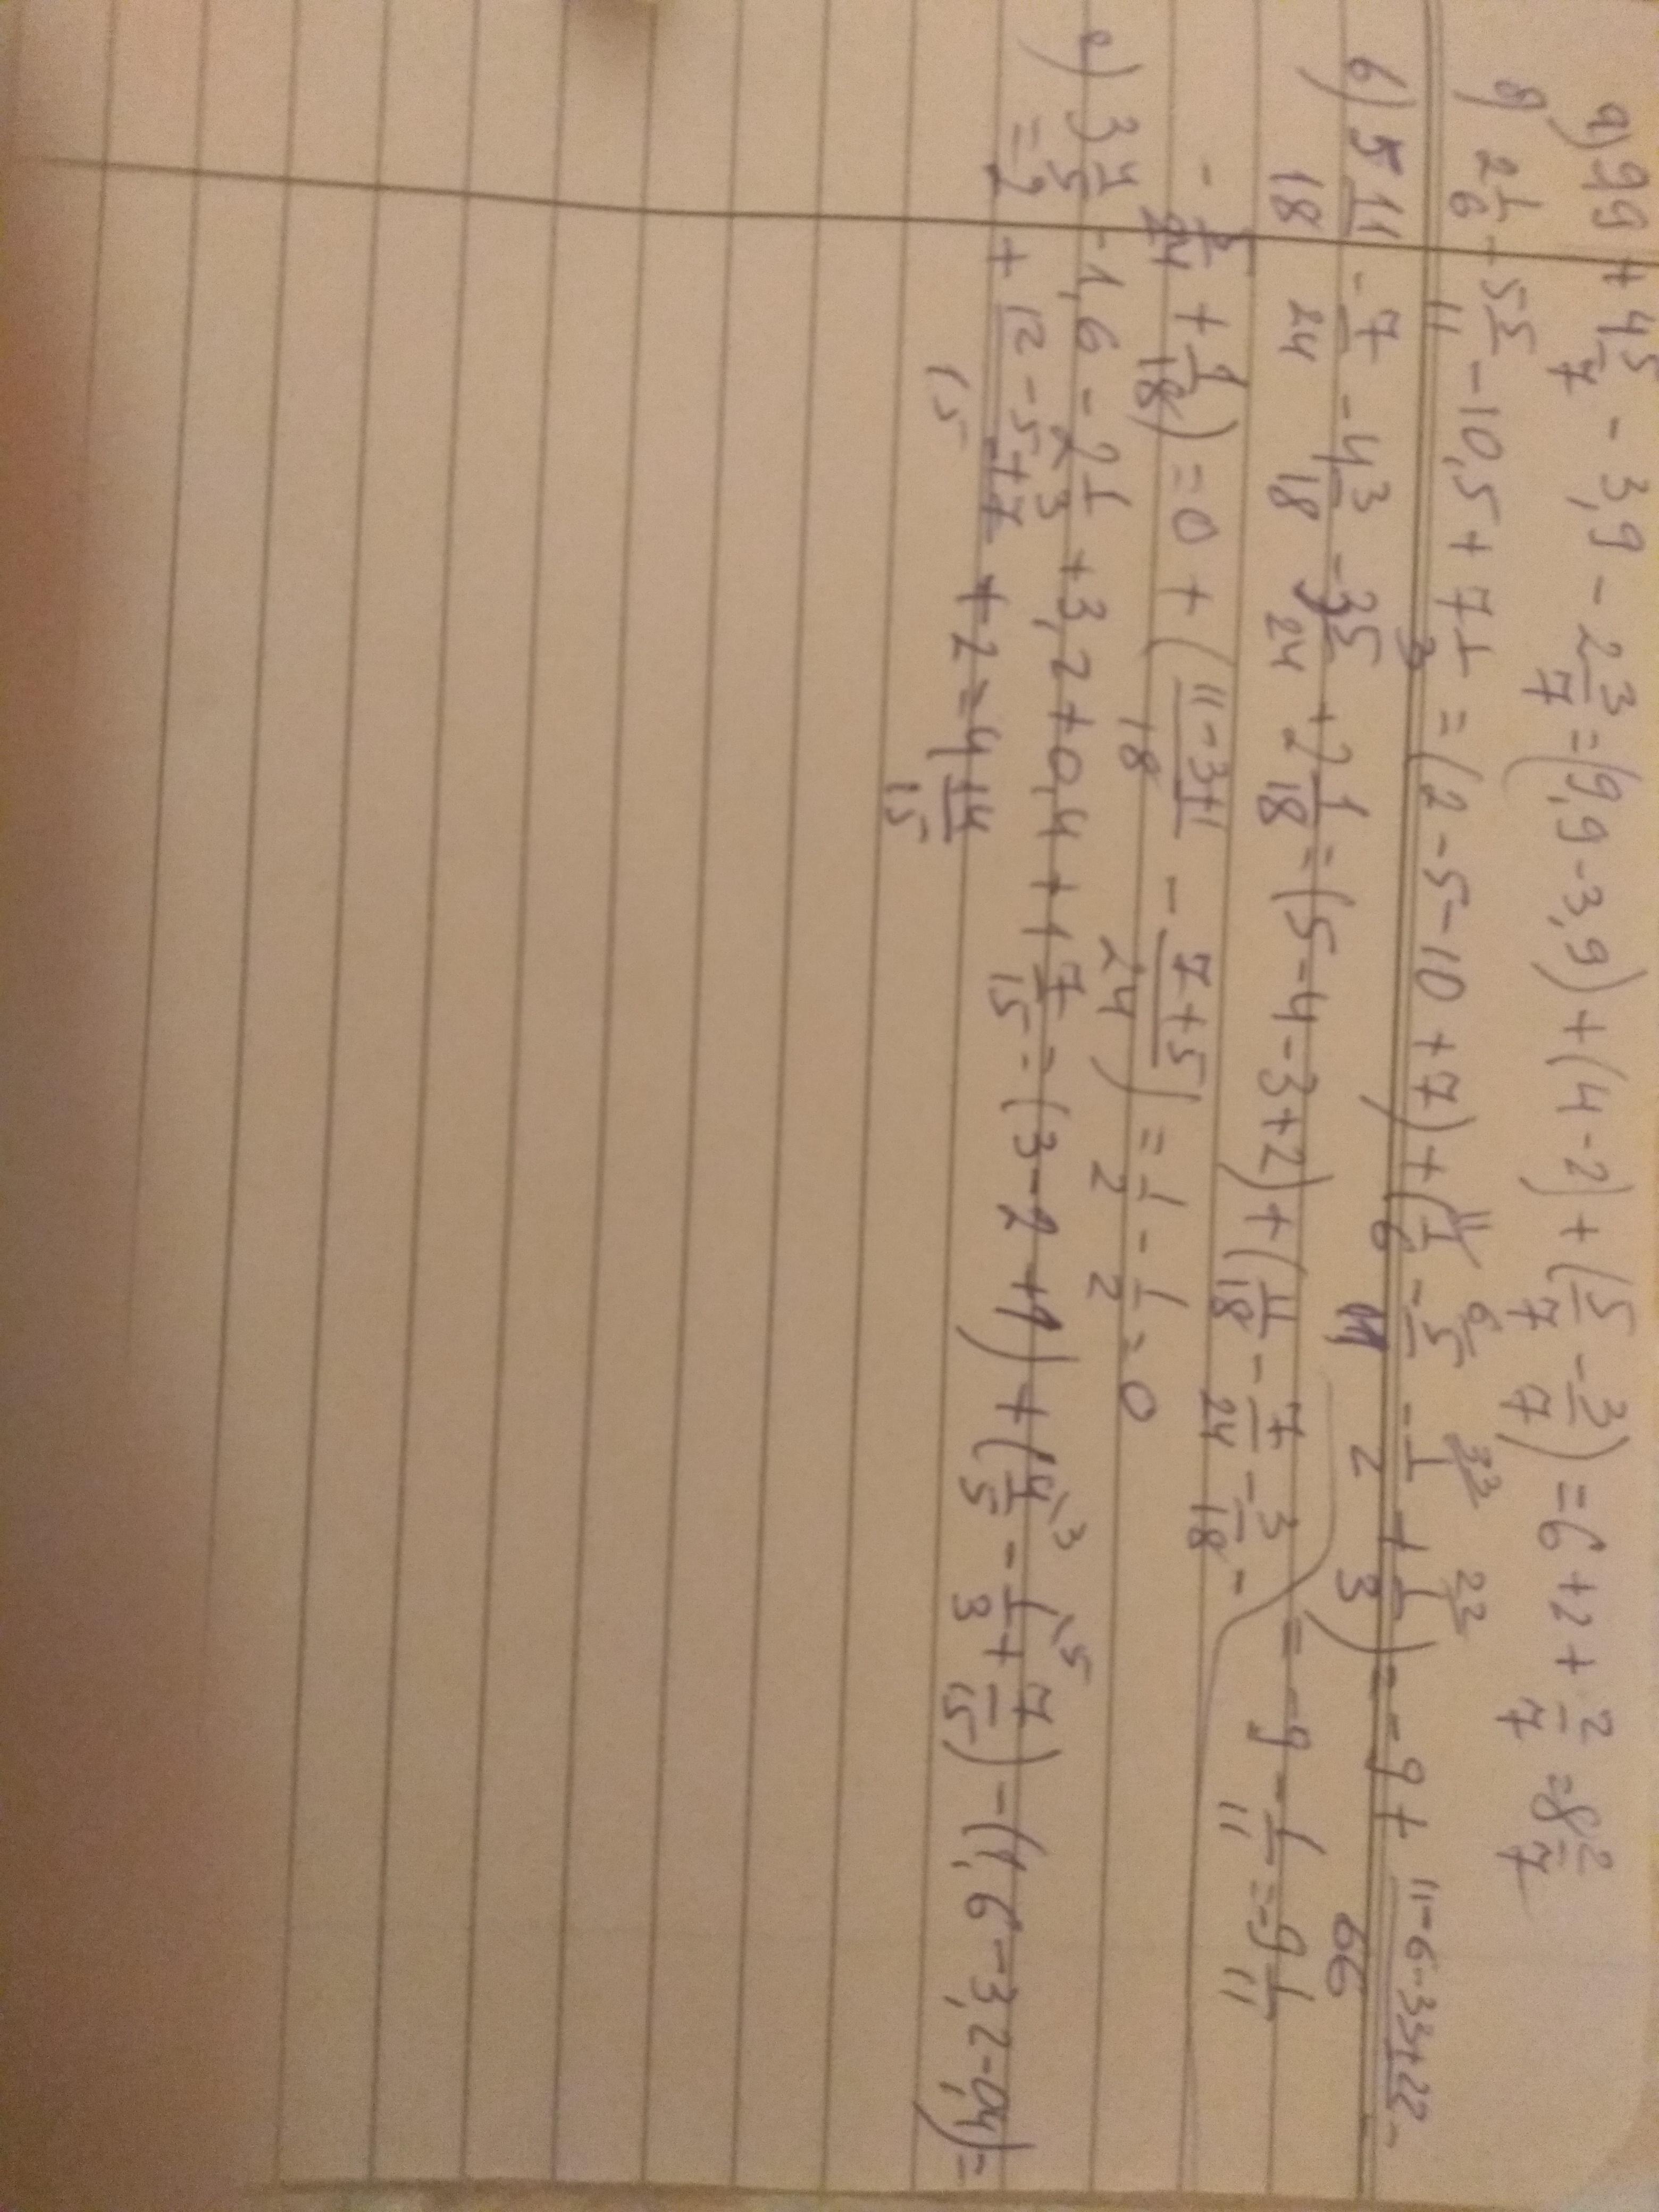 а) 9,9 + 4 5/7 - 3,9 - 2 3/7 = (9,9 - 3,9) + (4 - 2) + (5/7 - 3/7) = 6 + 2 + 2/7 = 8 2/7
2 1/6 - 5 5/11 - 10,5 + 7 1/3 = (2 - 5 - 10 + 7) + (1/6 - 5/11 - 1/2 + 1/3) = - 9 + (11 - 6 - 33 + 22)/66 -
= - 9 - 1/11 = - 9 1/11
б) 5 11/18 - 7/24 - 4 3/18 - 3 5/24 + 2 1/18 = (5 - 4 - 3 + 2) + (11/18 - 7/24 - 3/18 -
- 5/24 + 1/18) = 0 + ((11 - 3 + 1)/18 - (7 + 5)/24) = 1/2 - 1/2 = 0
е) 3 4/5 - 1,6 - 2 1/3 + 3,2 + 0,4 + 1 7/15 = (3 - 2 + 1) + (4/5 - 1/3 + 7/15) - (1,6 - 3,2 - 0,4) =
= 2 + (12 - 5 + 7)/15 + 2 = 4 14/15